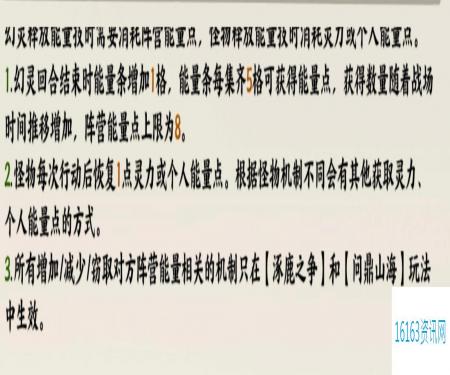 幻灵释放能量技时需要消耗阵营能量点，怪物释放能量技时消耗灵力或个人能量点。
1.幻灵回合结束时能量条增加1格，能量条每集齐5格可获得能量点，获得数量随着战场
时间推移增加，阵营能量点上限为8。
2.怪物每次行动后恢复1点灵力或个人能量点。根据怪物机制不同会有其他获取灵力、
个人能量点的方式。
3.所有增加/减少/窃取对方阵营能量相关的机制只在【涿鹿之争】和【问鼎山海】玩法
中生效。
16163资讯网